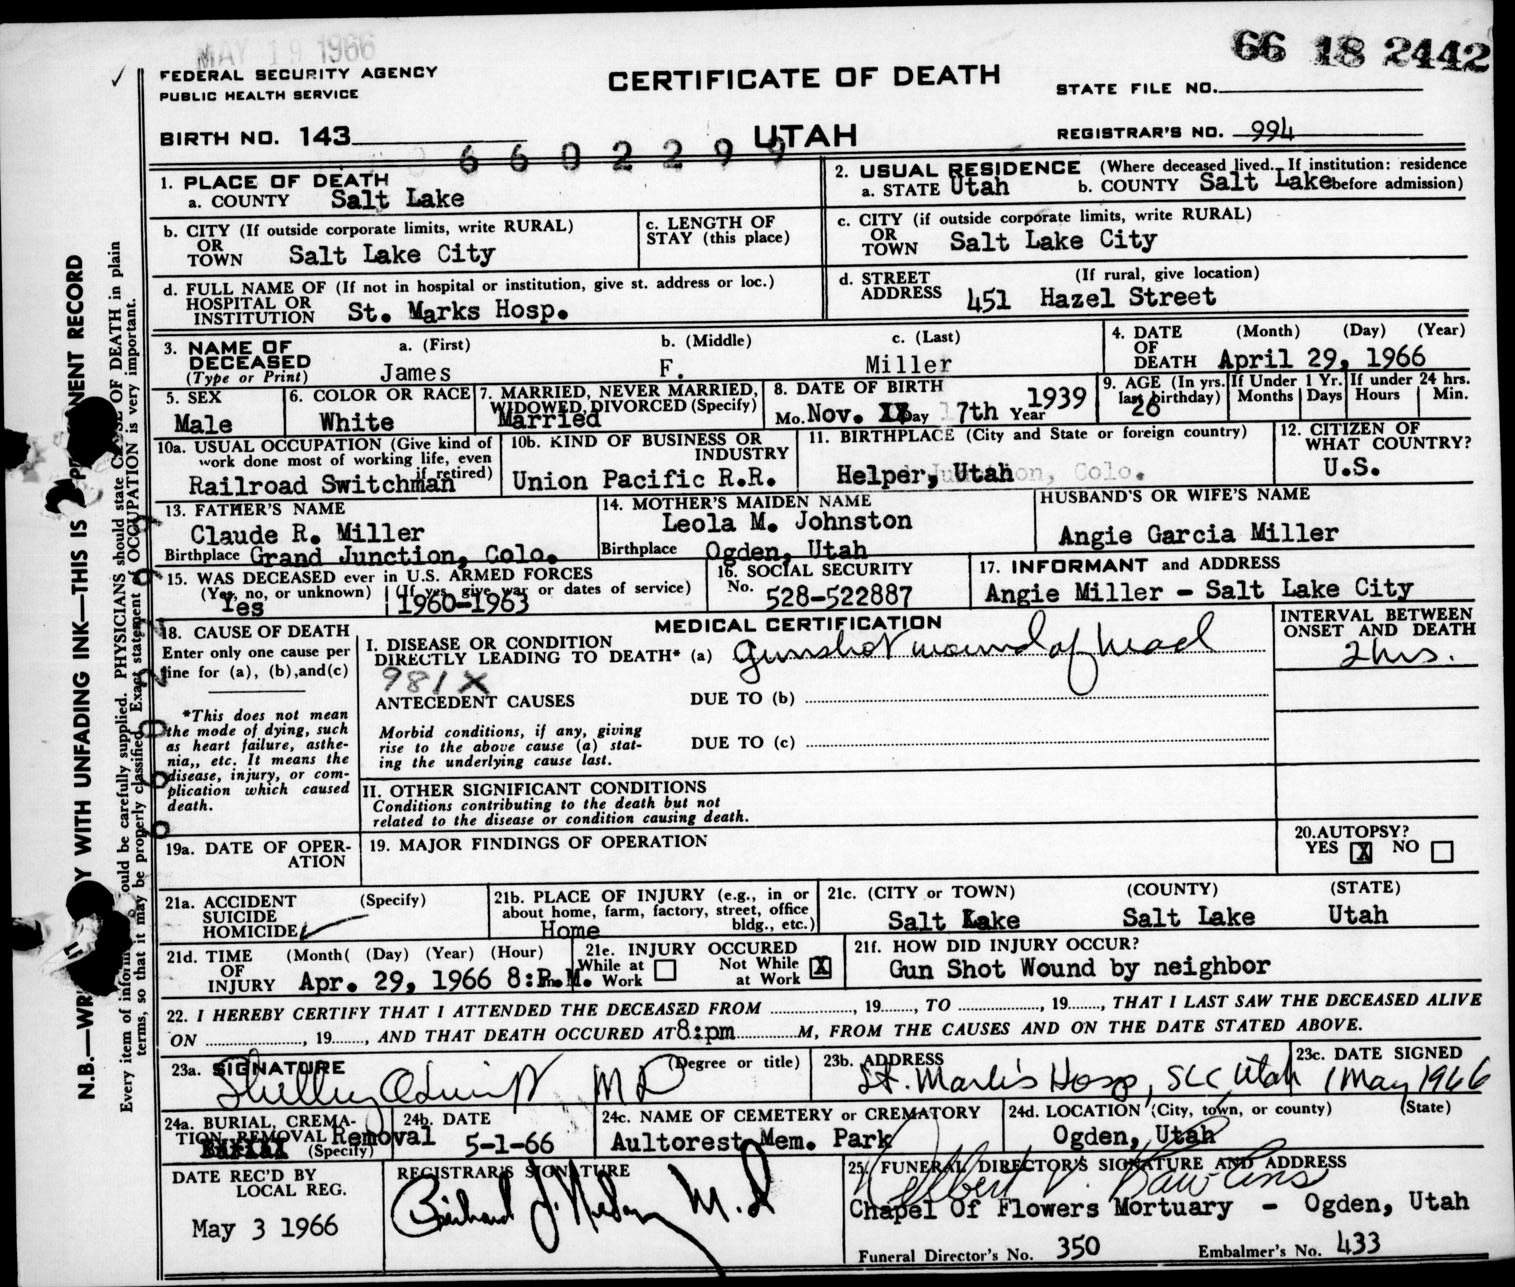 MAY 19 1966
66 18 2442
FEDERAL SECURITY AGENCY
PUBLIC HEALTH SERVICE
CERTIFICATE OF DEATH
STATE FILE NO.
BIRTH NO. 143
UTAH
REGISTRAR'S NO. 994
6602299
1. PLACE OF DEATH
a. COUNTY Salt Lake
2. USUAL RESIDENCE (Where deceased lived. If institution: residence before admission)
a. STATE Utah b. COUNTY Salt Lake
b. CITY (If outside corporate limits, write RURAL)
OR TOWN Salt Lake City
c. LENGTH OF STAY (this place)
c. CITY (if outside corporate limits, write RURAL)
OR TOWN Salt Lake City
d. FULL NAME OF (If not in hospital or institution, give st. address or loc.)
HOSPITAL OR INSTITUTION St. Marks Hosp.
d. STREET ADDRESS (If rural, give location)
451 Hazel Street
3. NAME OF DECEASED (Type or Print)
a. (First) b. (Middle) c. (Last)
James F. Miller
4. DATE OF DEATH (Month) (Day) (Year)
April 29, 1966
5. SEX
Male
6. COLOR OR RACE
White
7. MARRIED, NEVER MARRIED, WIDOWED, DIVORCED (Specify)
Married
8. DATE OF BIRTH
Mo. Nov. Day 7th Year 1939
9. AGE (In yrs. last birthday)
26
If Under 1 Yr. Months Days
If under 24 hrs. Hours Min.
10a. USUAL OCCUPATION (Give kind of work done most of working life, even if retired)
Railroad Switchman
10b. KIND OF BUSINESS OR INDUSTRY
Union Pacific R.R.
11. BIRTHPLACE (City and State or foreign country)
Helper, Utah
12. CITIZEN OF WHAT COUNTRY?
U.S.
13. FATHER'S NAME
Claude R. Miller
Birthplace Grand Junction, Colo.
14. MOTHER'S MAIDEN NAME
Leola M. Johnston
Birthplace Ogden, Utah
HUSBAND'S OR WIFE'S NAME
Angie Garcia Miller
15. WAS DECEASED ever in U.S. ARMED FORCES
(Yes, no, or unknown) (If yes, give war or dates of service)
Yes 1960-1963
16. SOCIAL SECURITY No. 528-522887
17. INFORMANT and ADDRESS
Angie Miller - Salt Lake City
18. CAUSE OF DEATH
Enter only one cause per line for (a), (b), and (c)
MEDICAL CERTIFICATION
I. DISEASE OR CONDITION
DIRECTLY LEADING TO DEATH* (a) gunshot wound of head
INTERVAL BETWEEN ONSET AND DEATH
2 hrs.
981X
ANTECEDENT CAUSES
DUE TO (b)
*This does not mean the mode of dying, such as heart failure, asthenia,, etc. It means the disease, injury, or complication which caused death.
Morbid conditions, if any, giving rise to the above cause (a) stating the underlying cause last.
DUE TO (c)
II. OTHER SIGNIFICANT CONDITIONS
Conditions contributing to the death but not
related to the disease or condition causing death.
19a. DATE OF OPERATION
19. MAJOR FINDINGS OF OPERATION
20. AUTOPSY?
YES X NO
21a. ACCIDENT (Specify)
SUICIDE
HOMICIDE ✓
21b. PLACE OF INJURY (e.g., in or about home, farm, factory, street, office bldg., etc.)
Home
21c. (CITY or TOWN) (COUNTY) (STATE)
Salt Lake Salt Lake Utah
21d. TIME OF INJURY (Month( (Day) (Year) (Hour)
Apr. 29, 1966 8:P.M.
21e. INJURY OCCURED
While at Work Not While at Work X
21f. HOW DID INJURY OCCUR?
Gun Shot Wound by neighbor
22. I HEREBY CERTIFY THAT I ATTENDED THE DECEASED FROM ........, 19..... TO ........, 19....., THAT I LAST SAW THE DECEASED ALIVE
ON ........, 19....., AND THAT DEATH OCCURED AT 8:pm M, FROM THE CAUSES AND ON THE DATE STATED ABOVE.
23a. SIGNATURE (Degree or title)
MD
23b. ADDRESS
St. Mark's Hosp, SLC, Utah
23c. DATE SIGNED
1 May 1966
24a. BURIAL, CREMATION, REMOVAL (Specify)
Removal
24b. DATE
5-1-66
24c. NAME OF CEMETERY or CREMATORY
Aultorest Mem. Park
24d. LOCATION (City, town, or county) (State)
Ogden, Utah
DATE REC'D BY LOCAL REG.
May 3 1966
REGISTRAR'S SIGNATURE
M.D
25. FUNERAL DIRECTOR'S SIGNATURE AND ADDRESS
Delbert V. Rawlins
Chapel Of Flowers Mortuary - Ogden, Utah
Funeral Director's No. 350 Embalmer's No. 433